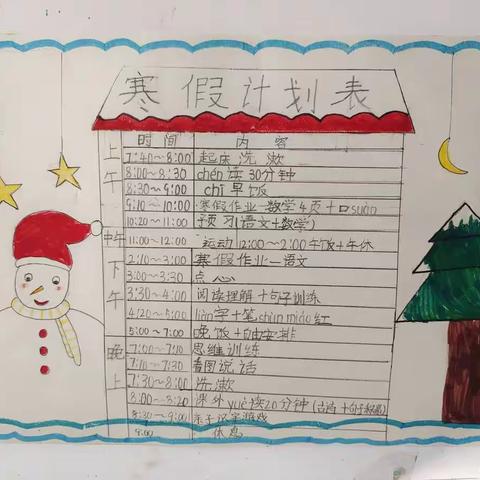 寒假计划表
时间 内容
上午
7:40~8:00 起床洗漱
8:00~8:30 chén读30分钟
8:30~9:00 chī早饭
9:10~10:00 寒假作业—数学4页+口suàn
10:20~11:00 预习(语文+数学)
中午 11:00~12:00 运动 12:00~2:00午饭+午休
下午
2:10~3:00 寒假作业—语文
3:00~3:30 点心
3:30~4:00 阅读理解+句子训练
4:20~5:00 liàn字+笔shùn miáo红
5:00~7:00 晚饭+自由安排
晚上
7:00~7:10 思维训练
7:10~7:30 看图说话
7:30~8:00 洗漱
8:00~8:20 课外yuè读20分钟(古诗+句子积累)
8:30~9:00 亲子识字游戏
9:00 休息